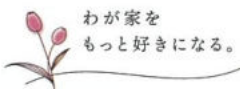 わが家を
もっと好きになる。